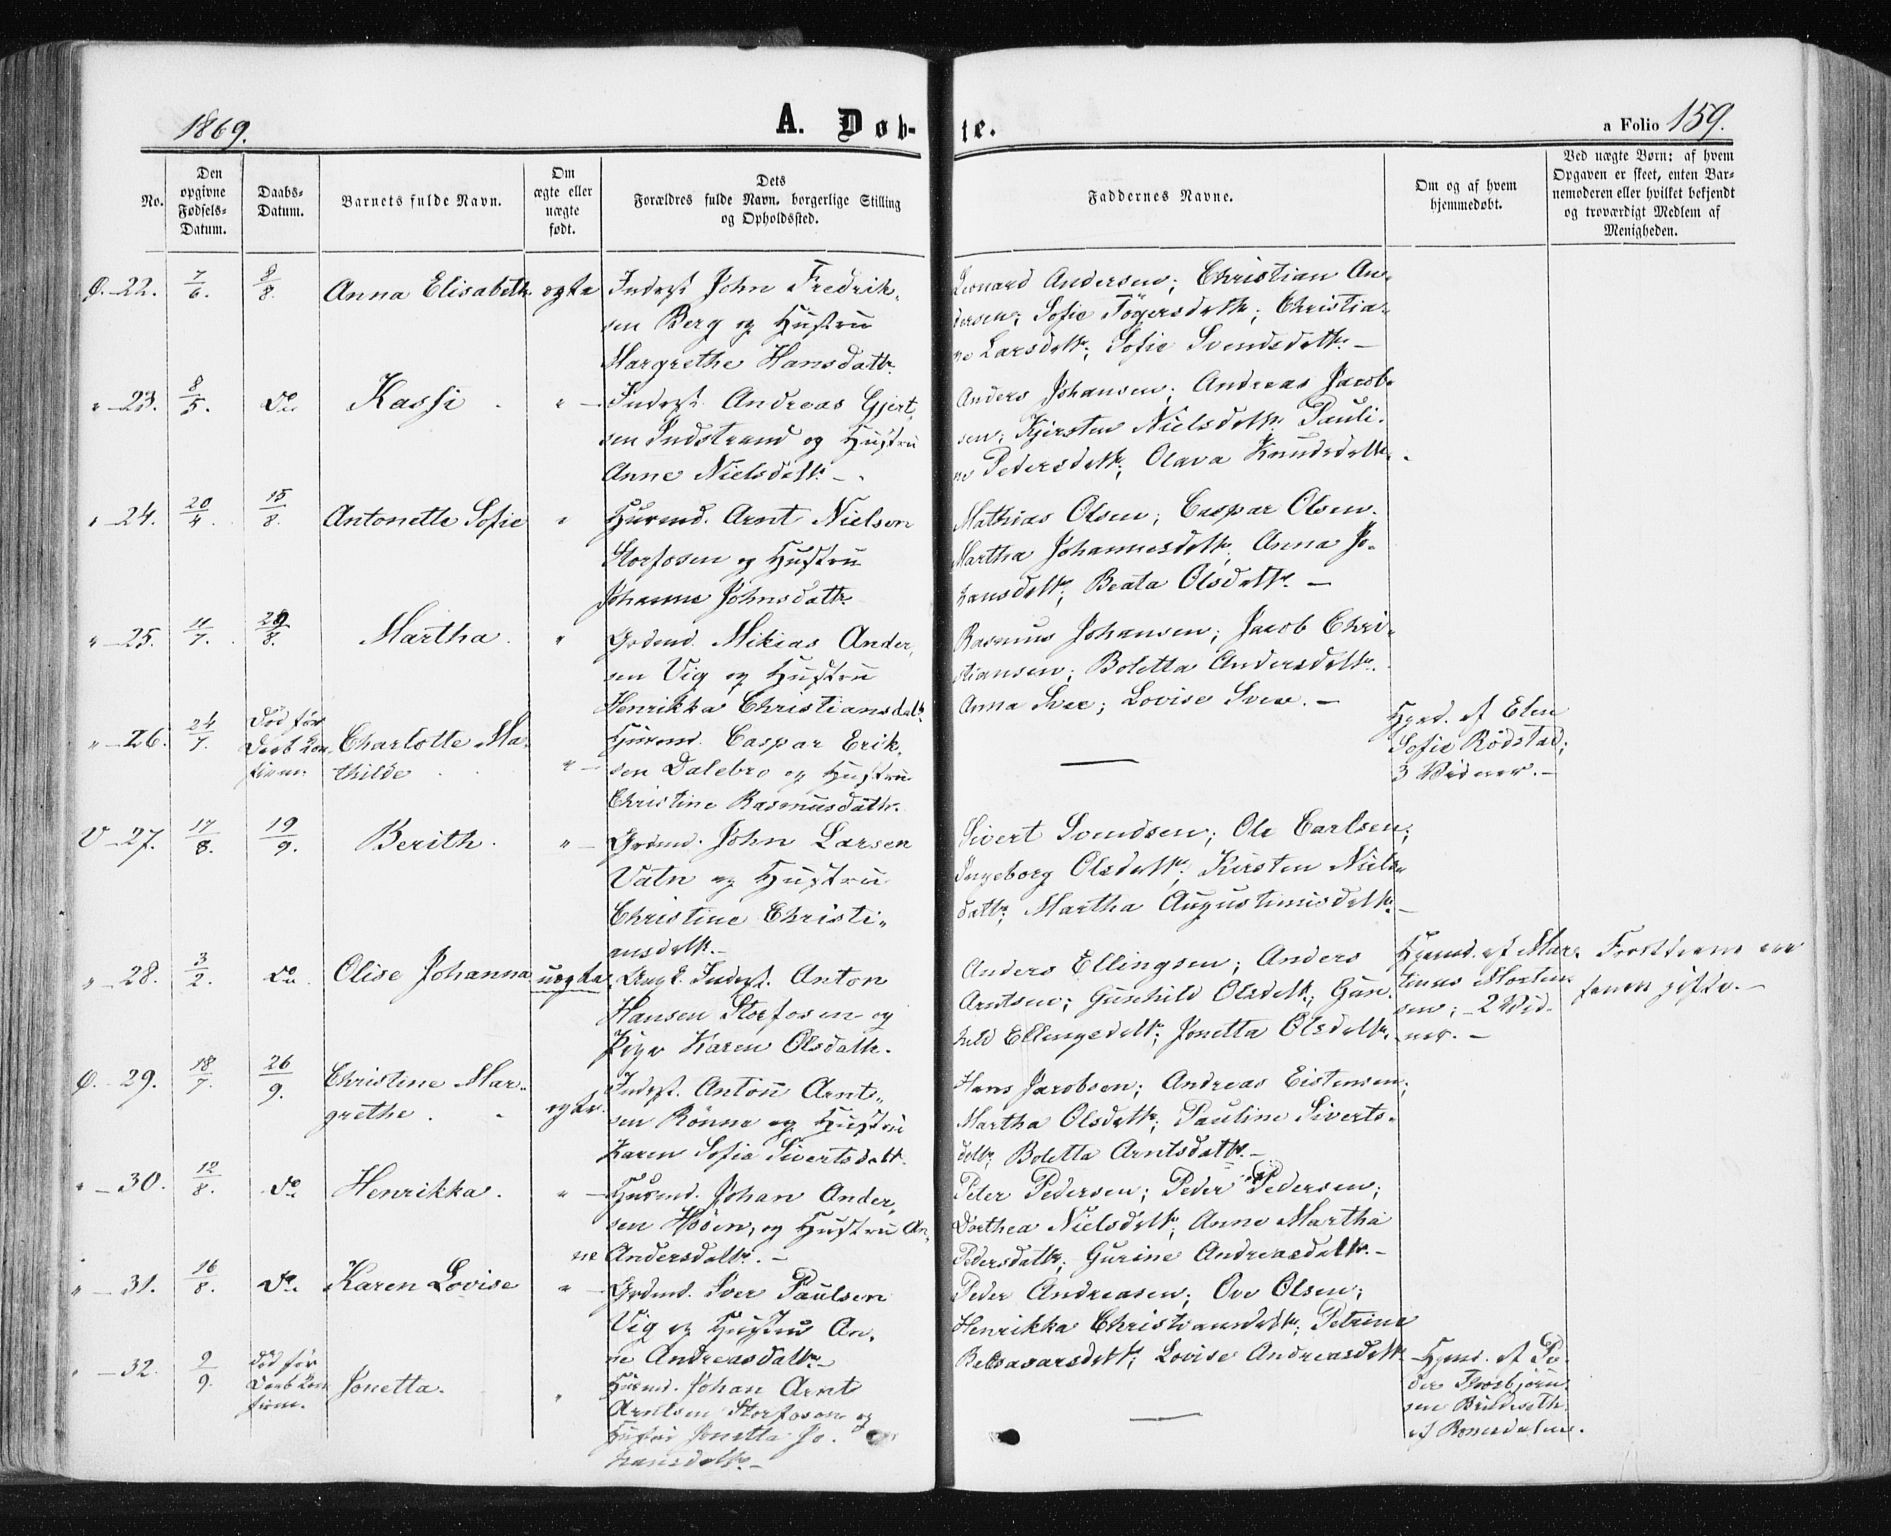 1869.
A. Døb-
te.
a Folio 159.
No.
Den opgivne Fødsels-Datum.
Daabs-Datum.
Barnets fulde Navn.
Om ægte eller uægte født.
Dets Forældres fulde Navn, borgerlige Stilling og Opholdssted.
Faddernes Navne.
Om og af hvem hjemmedøbt.
Ved uægte Børn: af hvem Opgaven er skeet, enten Barnemoderen eller hvilket bekjendt og troværdigt Medlem af Menigheden.
22. 7/6. 8/8. Anna Elisabeth ægte Inderst John Fredrik-
sen Berg og Hustru
Margrethe Hansdattr.
Leonard Andersen; Christian An-
dersen; Sofie Tøgersdattr; Christia-
ne Larsdattr; Sofie Svendsdattr. —
" 23. 8/5. Do. Kassi " Inderst Andreas Gjert-
sen Indstrand og Hustru
Anne Nielsdattr. —
Anders Johansen; Andreas Jacob-
sen; Kjersten Nielsdattr. Pauli-
ne Pedersdattr; Olava Knudsdattr.
" 24. 20/4. 15/8. Antonette Sofie " Huusmd. Arnt Nielsen
Storfosen og Hustru
Johanna Johnsdattr.
Mathias Olsen; Caspar Olsen.
Martha Johannesdattr. Anna Jo-
hansdattr; Beata Olsdattr. —
" 25. 11/7. 8. Martha. " Grdmd. Mikias Ander-
sen Vig og Hustru
Henrikka Christiansdattr.
Rasmus Johansen; Jacob Chri-
stiansen; Boletta Andersdattr.
Anna Svee; Lovise Svee. —
" 26. 24/7. Død før
Daab Kon-
firm. Charlotte Ma-
thilde " Huusmd. Caspar Erik-
sen Dalebro og Hustru
Christine Rasmusdattr.
—
Hjmd. af Elen
Sofie Rödstad;
3 Vidner. —
V 27. 17/8. 19/9. Berith. " Grdmd. John Larsen
Vatn og Hustru
Christine Christi-
ansdattr. —
Sivert Svendsen; Ole Carlsen;
Ingeborg Olsdattr; Kirsten Niels-
dattr; Martha Augustinusdattr. —
" 28. 3/2. Do. Olise Johanna uægte Ungk. Inderst. Anton
Hansen Storfosen og
Pige Karen Olsdattr.
Anders Ellingsen; Anders
Arntsen; Gunhild Olsdattr; Gun-
hild Ellingsdattr; Jonetta Olsdattr.
Hjemd. af Mar-
tinus Morten-
sen; 2 Vid-
ner. —
Forældrene ere
senere gifte. —
29. 18/7. 26/9. Christine Mar-
grethe. ægte. Inderst. Anton Arnt-
sen Rönne og Hustru
Karen Sofia Sivertsdattr.
Hans Jacobsen; Andreas Eistensen;
Martha Olsdattr; Pauline Siverts-
dattr; Boletta Arntsdattr. —
" 30. 12/8. Do. Henrikka. " Huusmd. Johan Ander-
sen Hosen, og Hustru An-
ne Andersdattr. —
Peter Pedersen; Peder Pedersen;
Dorthea Nielsdattr, Anne Martha
Pedersdattr; Gurine Andreasdattr. —
" 31. 16/8. Do. Karen Lovise " Grdmd. Iver Paulsen
Vig og Hustru An-
ne Andreasdattr. —
Peder Andreasen; Ove Olsen;
Henrikka Christiansdattr; Petrina
Balsavarsdattr; Lovise Andreasdattr
" 32. 2/9. Død før
Daab Kon-
firm. Jonetta. " Huusmd. Johan Arnt
Arntsen Storfosen og
Hustru Jonetta Jo-
hansdattr. —
—
Hjmd. af Pe-
der Thorbjørn-
sen
af Romsdalen.